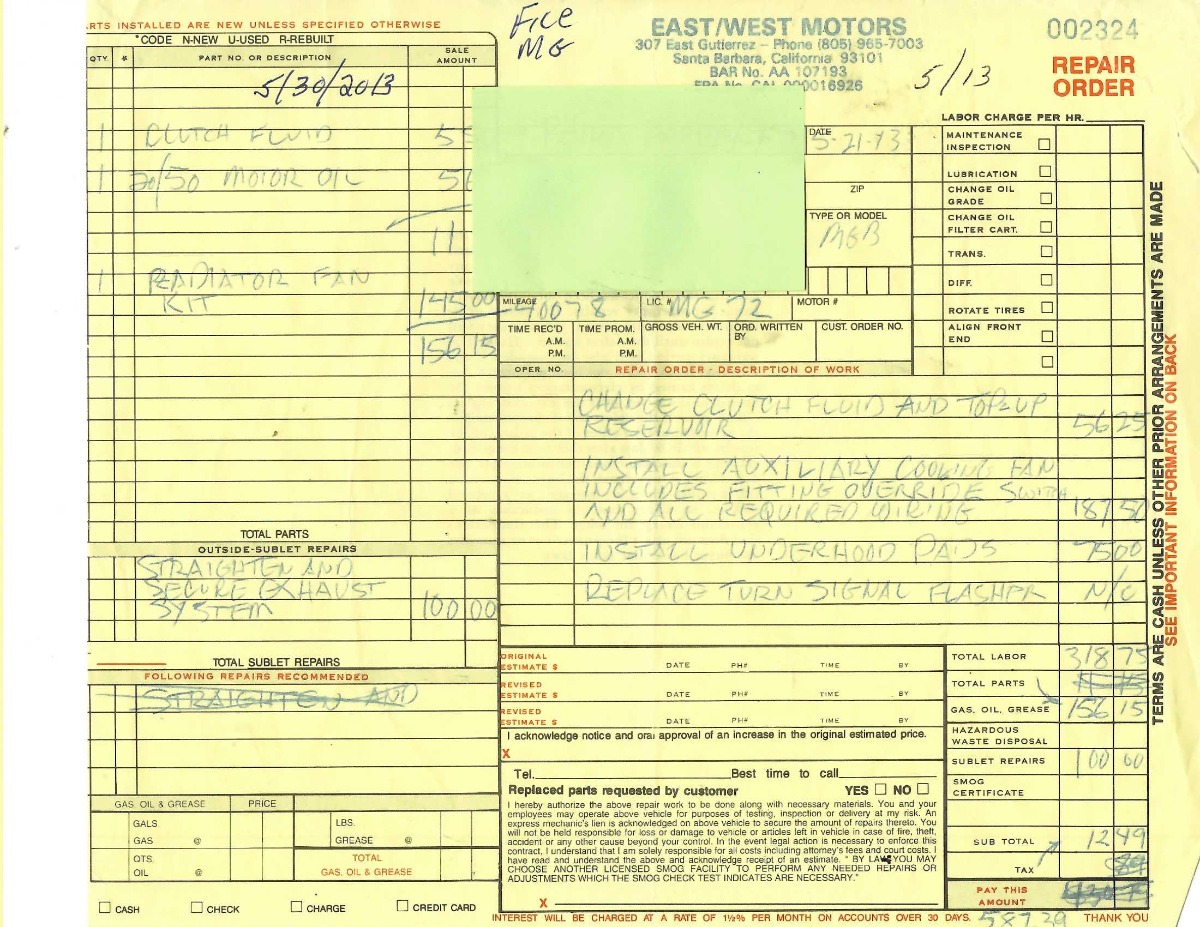 PARTS INSTALLED ARE NEW UNLESS SPECIFIED OTHERWISE
File
MG
EAST/WEST MOTORS
307 East Gutierrez – Phone (805) 965-7003
Santa Barbara, California 93101
BAR No. AA 107193
EPA No. CAL 000016926
5/13
002324
REPAIR
ORDER
*CODE N-NEW U-USED R-REBUILT
QTY. # PART NO. OR DESCRIPTION SALE AMOUNT
5/30/2013
1 CLUTCH FLUID
1 20/50 MOTOR OIL
11
1 RADIATOR FAN
KIT 145 00
156 15
TOTAL PARTS
OUTSIDE-SUBLET REPAIRS
STRAIGHTEN AND
SECURE EXHAUST
SYSTEM 100 00
TOTAL SUBLET REPAIRS
FOLLOWING REPAIRS RECOMMENDED
STRAIGHTEN AND
GAS OIL & GREASE PRICE
GALS. GAS @
QTS. OIL @
LBS. GREASE @
TOTAL
GAS, OIL & GREASE
CASH CHECK CHARGE CREDIT CARD
DATE
5-21-13
ZIP
TYPE OR MODEL
MGB
MILEAGE 40078 LIC. # MG 72 MOTOR #
TIME REC'D A.M. P.M.
TIME PROM. A.M. P.M.
GROSS VEH. WT.
ORD. WRITTEN BY
CUST. ORDER NO.
OPER. NO. REPAIR ORDER - DESCRIPTION OF WORK
CHANGE CLUTCH FLUID AND TOP-UP
RESERVOIR 56 25
INSTALL AUXILIARY COOLING FAN
INCLUDES FITTING OVERRIDE SWITCH
AND ALL REQUIRED WIRING 187 50
INSTALL UNDERHOOD PADS 75 00
REPLACE TURN SIGNAL FLASHER N/C
LABOR CHARGE PER HR.
MAINTENANCE INSPECTION
LUBRICATION
CHANGE OIL GRADE
CHANGE OIL FILTER CART.
TRANS.
DIFF.
ROTATE TIRES
ALIGN FRONT END
ORIGINAL ESTIMATE $ DATE PH# TIME BY
REVISED ESTIMATE $ DATE PH# TIME BY
REVISED ESTIMATE $ DATE PH# TIME BY
I acknowledge notice and oral approval of an increase in the original estimated price.
X
Tel. Best time to call
Replaced parts requested by customer YES NO
I hereby authorize the above repair work to be done along with necessary materials. You and your
employees may operate above vehicle for purposes of testing, inspection or delivery at my risk. An
express mechanic's lien is acknowledged on above vehicle to secure the amount of repairs thereto. You
will not be held responsible for loss or damage to vehicle or articles left in vehicle in case of fire, theft,
accident or any other cause beyond your control. In the event legal action is necessary to enforce this
contract, I understand that I am solely responsible for all costs including attorney's fees and court costs. I
have read and understand the above and acknowledge receipt of an estimate. " BY LAW YOU MAY
CHOOSE ANOTHER LICENSED SMOG FACILITY TO PERFORM ANY NEEDED REPAIRS OR
ADJUSTMENTS WHICH THE SMOG CHECK TEST INDICATES ARE NECESSARY."
X
TOTAL LABOR 318 75
TOTAL PARTS
GAS, OIL, GREASE 156 15
HAZARDOUS WASTE DISPOSAL
SUBLET REPAIRS 100 00
SMOG CERTIFICATE
SUB TOTAL 12 49
TAX
PAY THIS AMOUNT
587.39
INTEREST WILL BE CHARGED AT A RATE OF 1½% PER MONTH ON ACCOUNTS OVER 30 DAYS.
THANK YOU
TERMS ARE CASH UNLESS OTHER PRIOR ARRANGEMENTS ARE MADE
SEE IMPORTANT INFORMATION ON BACK